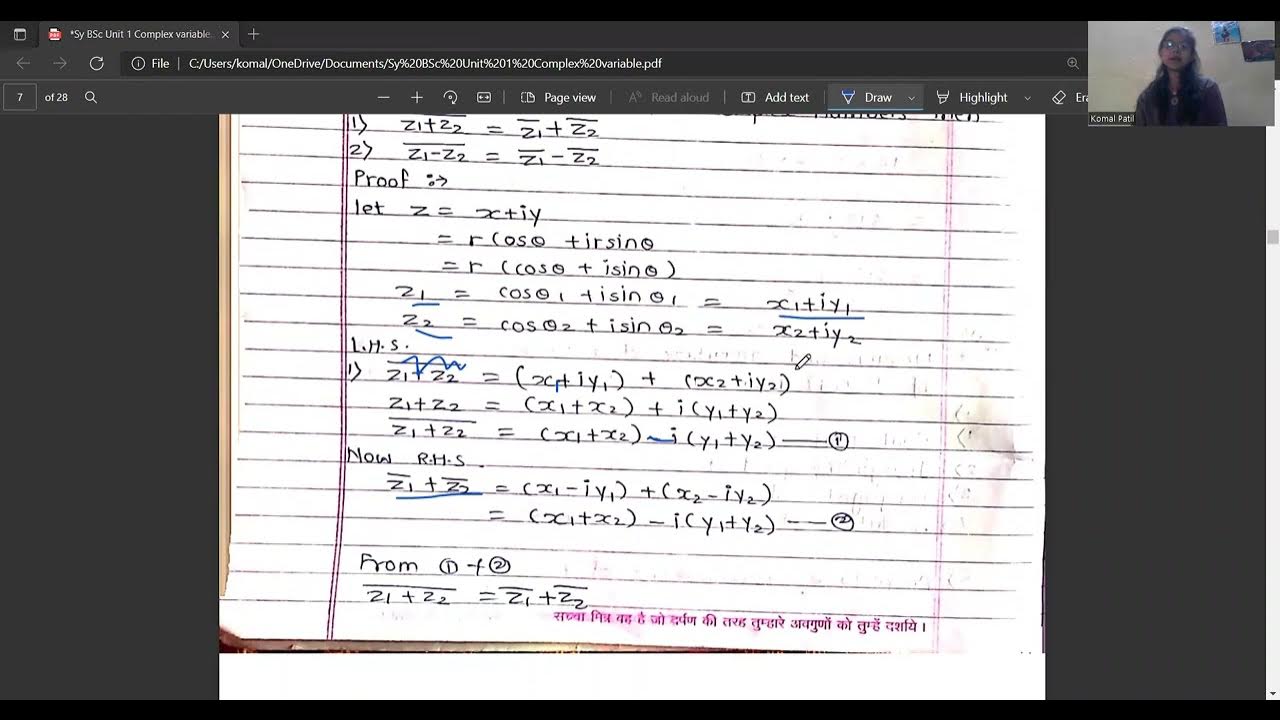 *Sy BSc Unit 1 Complex variable.
File C:/Users/komal/OneDrive/Documents/Sy%20BSc%20Unit%201%20Complex%20variable.pdf
7 of 28 Page view Read aloud Add text Draw Highlight Era
Komal Patil
1) \overline{z₁+z₂} = \overline{z₁} + \overline{z₂}
2) \overline{z₁-z₂} = \overline{z₁} - \overline{z₂}
Proof :→
let z = x+iy
= r cosθ + irsinθ
= r (cosθ + isinθ)
z₁ = cosθ₁ + isinθ₁ = x₁+iy₁
z₂ = cosθ₂ + isinθ₂ = x₂+iy₂
L.H.S.
1) z₁+z₂ = (x₁+iy₁) + (x₂+iy₂)
z₁+z₂ = (x₁+x₂) + i(y₁+y₂)
\overline{z₁+z₂} = (x₁+x₂) - i(y₁+y₂) — ①
Now R.H.S.
\overline{z₁} + \overline{z₂} = (x₁-iy₁) + (x₂-iy₂)
= (x₁+x₂) - i(y₁+y₂) — ②
From ① + ②
\overline{z₁+z₂} = \overline{z₁} + \overline{z₂}
सच्चा मित्र वह है जो दर्पण की तरह तुम्हारे अवगुणों को तुम्हें दर्शाये।